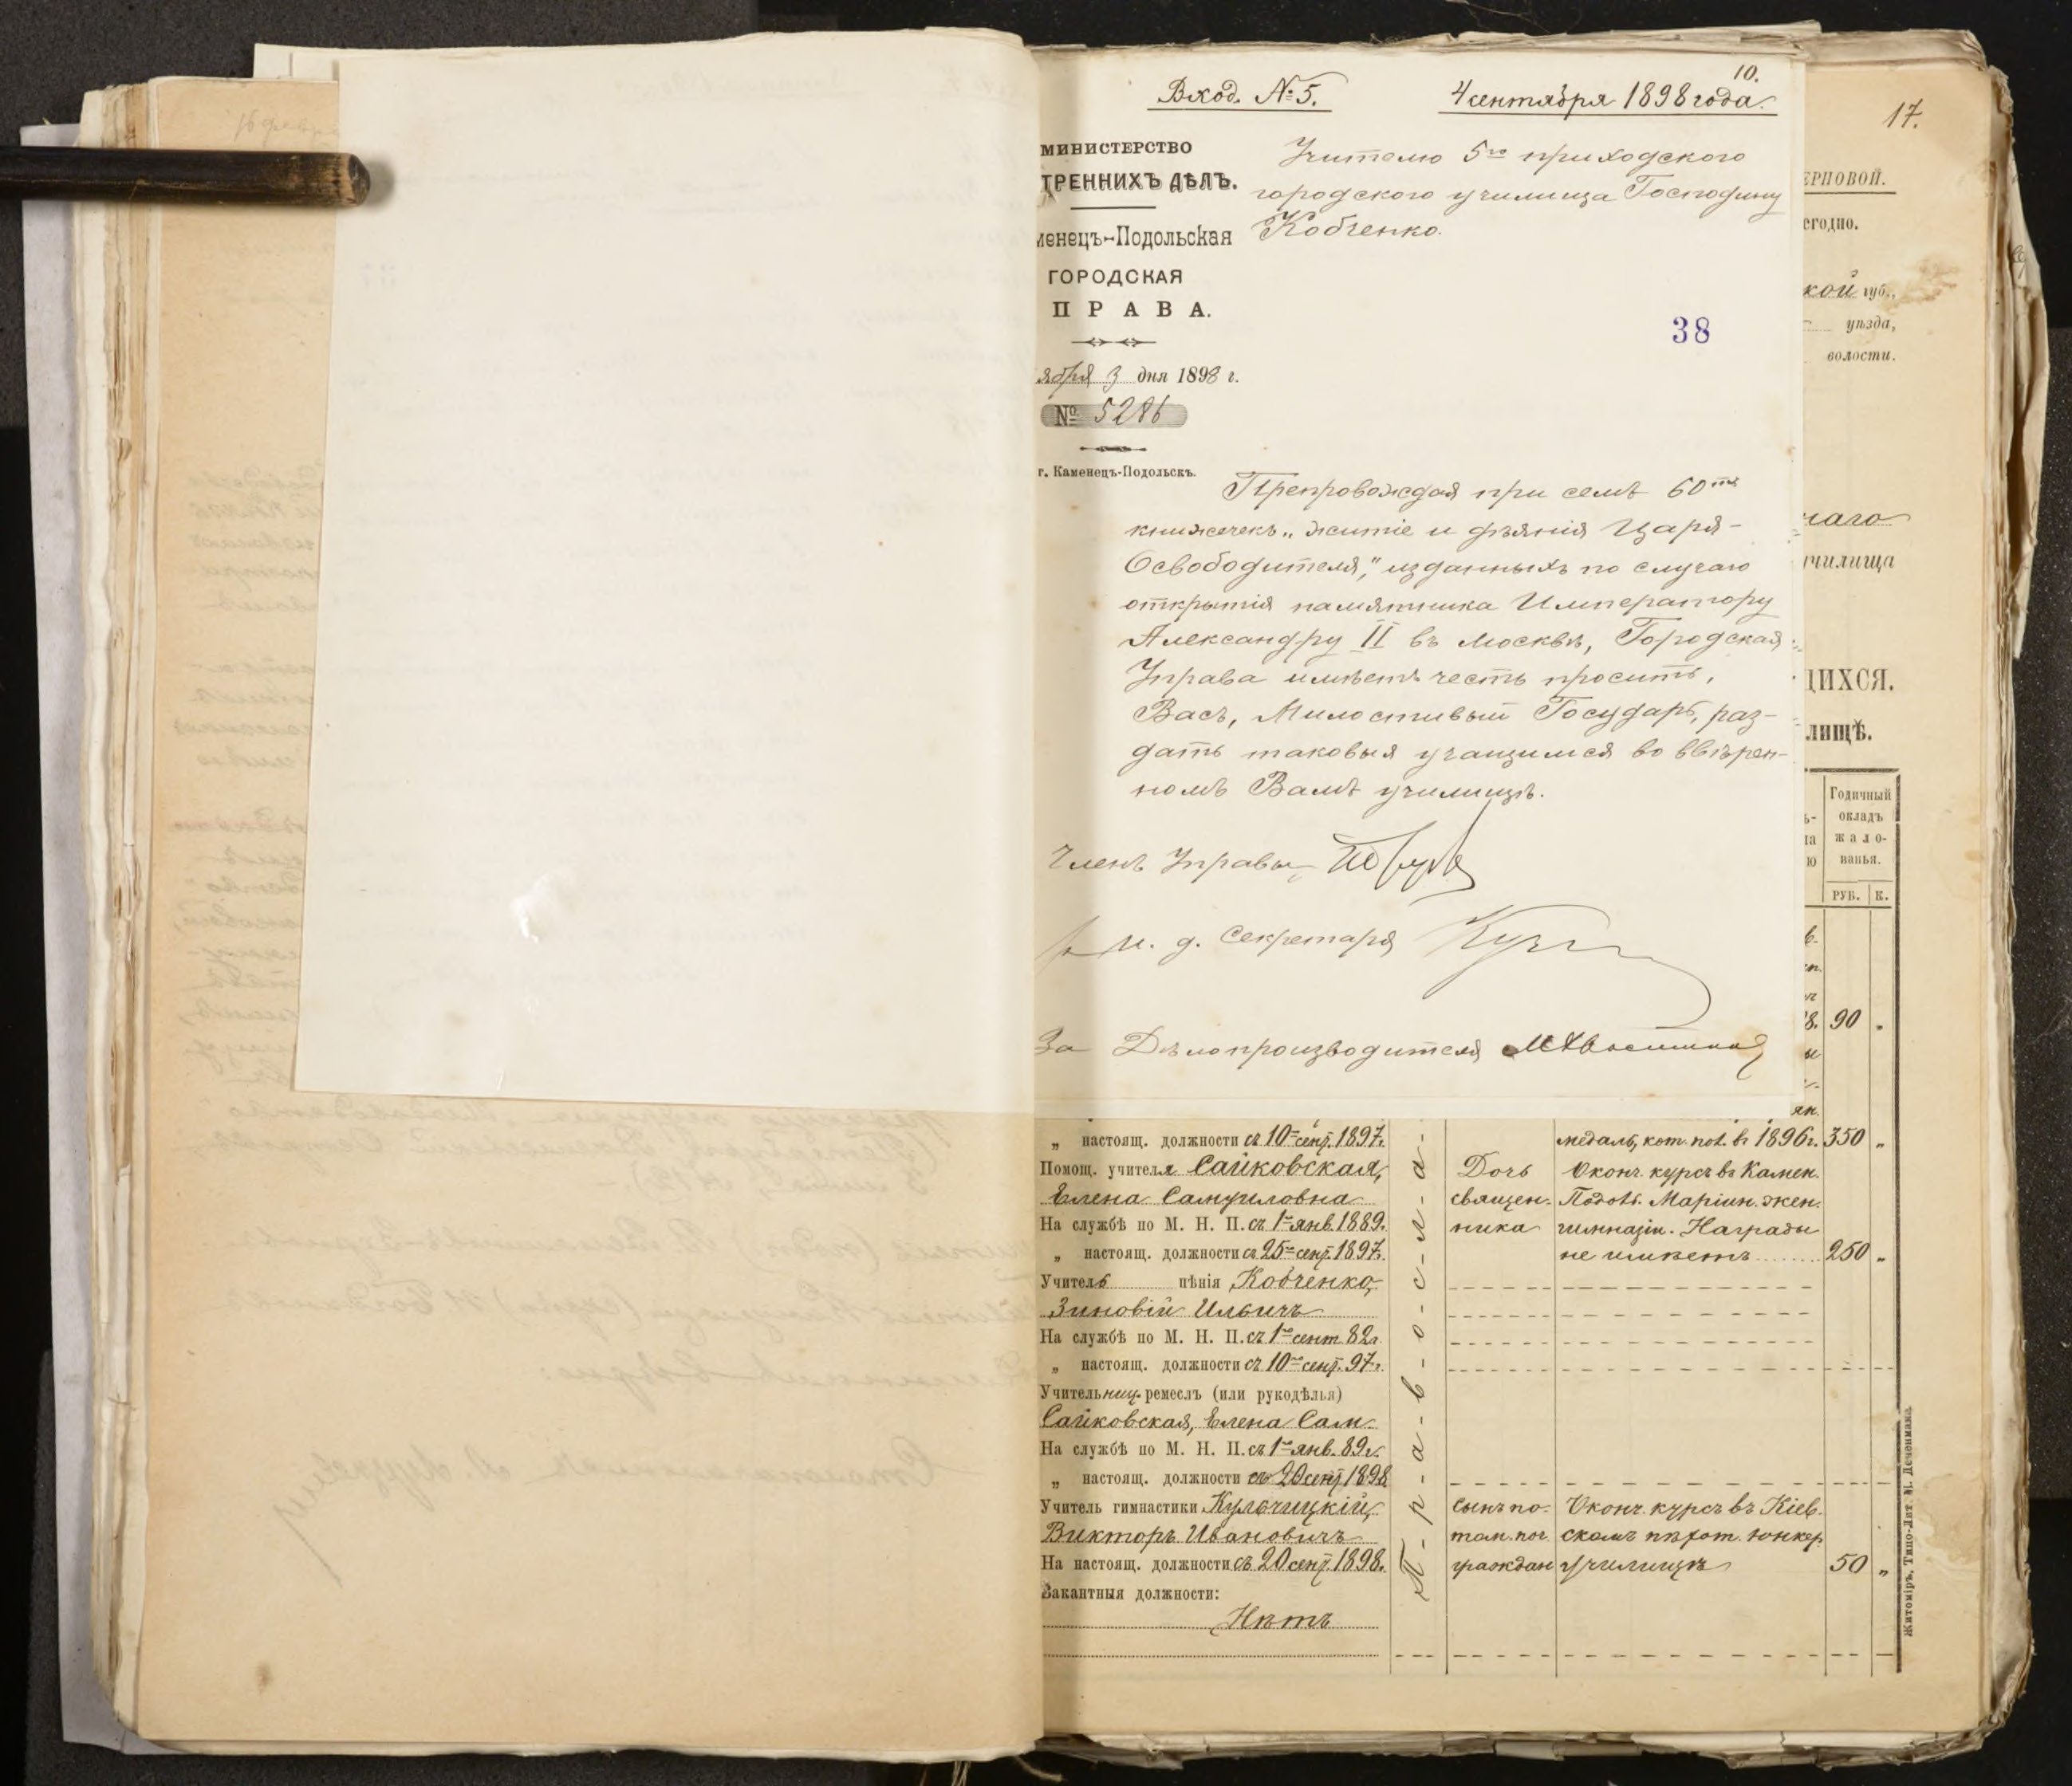 10.
Вход. № 5. 4 сентября 1898 года.
17.
МИНИСТЕРСТВО
ТРЕННИХЪ ДѢЛЪ.
менецъ-Подольская
ГОРОДСКАЯ
ПРАВА.
ября 3 дня 1898 г.
№ 5286
г. Каменецъ-Подольскъ.
Учителю 5го приходского
городского училища Господину
Кобченко.
38
Препровождая при семъ 60ть
книжечекъ „житіе и дѣянія Царя-
Освободителя," изданныхъ по случаю
открытія памятника Императору
Александру II въ Москвѣ, Городская
Управа имѣетъ честь просить,
Васъ, Милостивый Государь, раз-
дать таковыя учащимся во ввѣрен-
номъ Вамъ училищѣ.
Членъ Управы
И. д. Секретаря
За Дѣлопроизводителя
ЕРНОВОЙ.
егодно.
кой губ.,
уѣзда,
волости.
наго
училища
ЩИХСЯ.
ЛИЩѢ.
Годичный
окладъ
жало-
ванья.
РУБ. К.
8. 90 „
„ настоящ. должности съ 10го сент. 1897г. медаль, кот. пол. въ 1896г. 350 „
Помощ. учителя Сайковская, Дочь Оконч. курсъ въ Камен.
Елена Самуиловна священ- Подол. Маріин. жен.
На службѣ по М. Н. П. съ 1го янв. 1889г. ника гимназіи. Награды
„ настоящ. должности съ 25го сент. 1897г. не имѣетъ 250 „
Учитель пѣнія Кобченко,
Зиновій Ильичъ
На службѣ по М. Н. П. съ 1го сент 82г.
„ настоящ. должности съ 10го сент. 97г.
Учительниц. ремеслъ (или рукодѣлья)
Сайковская, Елена Сам.
На службѣ по М. Н. П. съ 1го янв. 89г.
„ настоящ. должности съ 20 сент. 1898
Учитель гимнастики Кульчицкій, сынъ по- Оконч. курсъ въ Кіев-
Викторъ Ивановичъ том. поч. скомъ пѣхот. юнкер.
На настоящ. должности съ 20 сент. 1898г. граждан училищѣ 50 „
Вакантныя должности:
Нѣтъ
П-р-а-в-о-с-л-а-
Житоміръ, Типо-Лит. М. Дененмана.